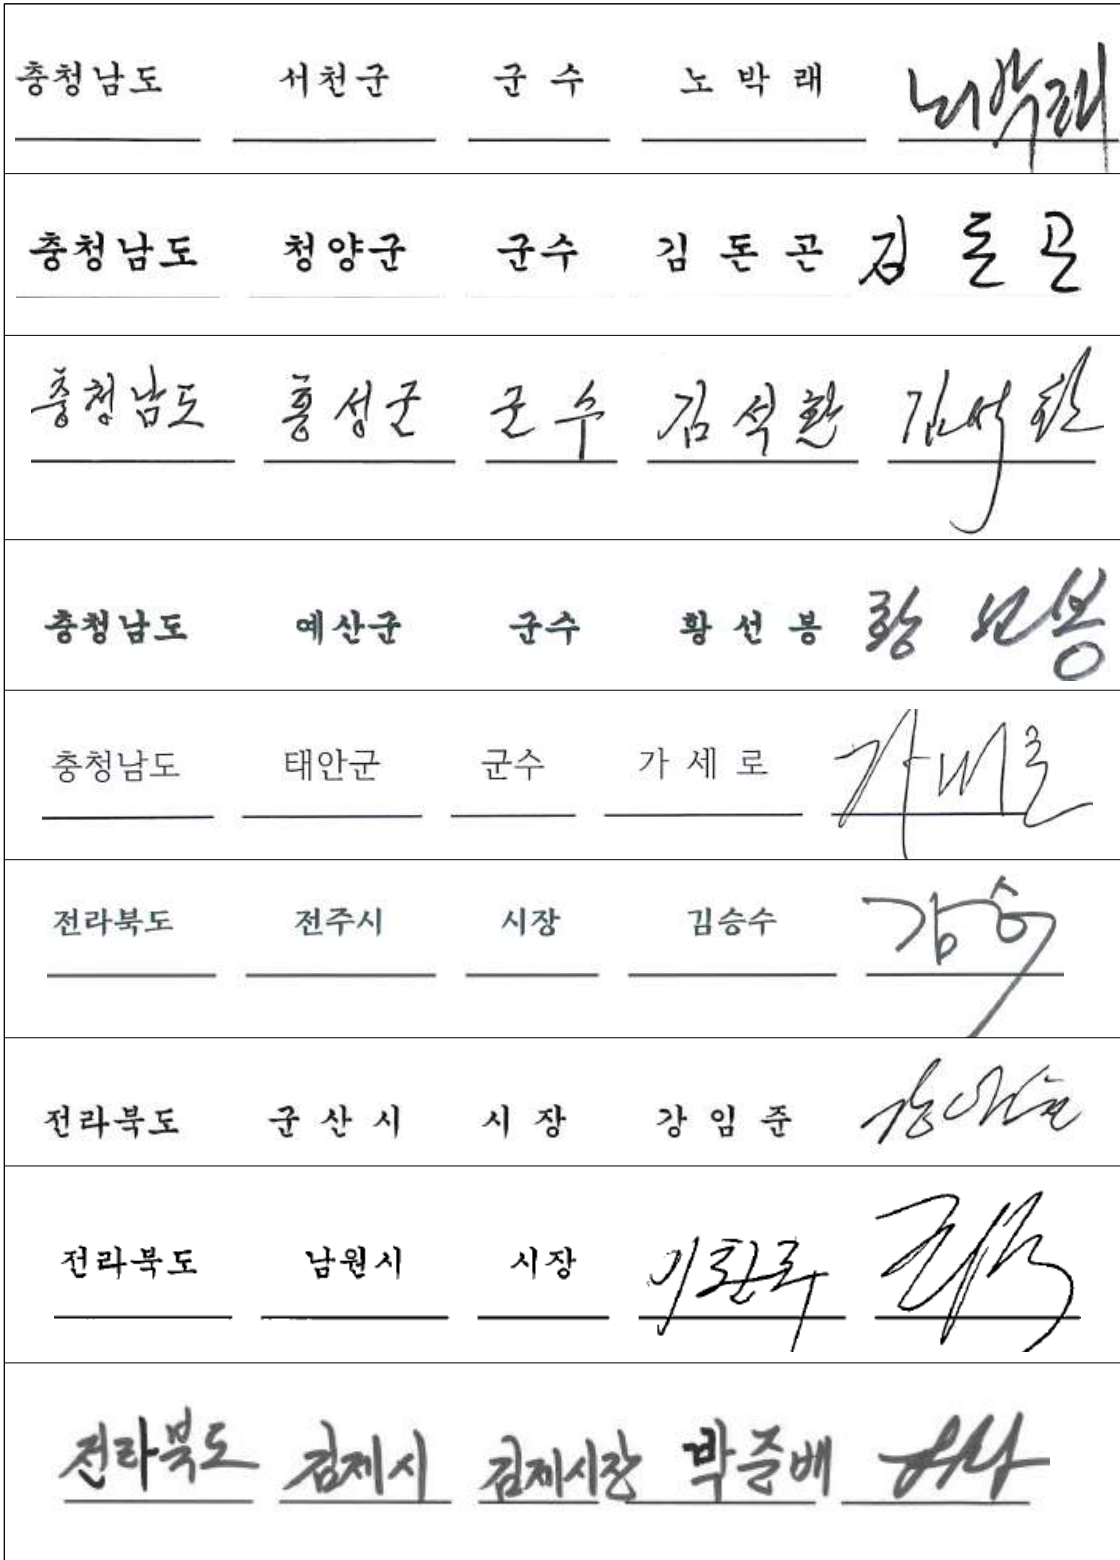 충청남도 서천군 군 수 노 박 래 노박래
충청남도 청양군 군수 김 돈 곤 김 돈 곤
충청남도 홍성군 군수 김석환 김석환
충청남도 예산군 군수 황 선 봉 황 선봉
충청남도 태안군 군수 가 세 로 가세로
전라북도 전주시 시장 김승수 김승
전라북도 군 산 시 시 장 강 임 준
전라북도 남원시 시장 이환주
전라북도 김제시 김제시장 박준배